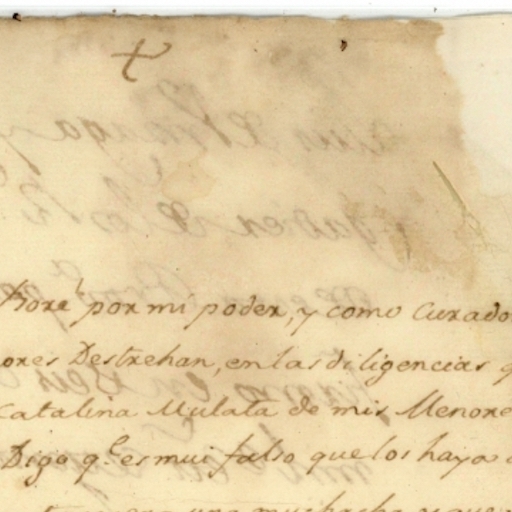 Boreˡ por mi poder, y como Curado
ores Destrehan, en las diligencias q
Catalina Mulata de mis Menore
Digo q.ᵉ es mui falso que los haya
una muchacha y que